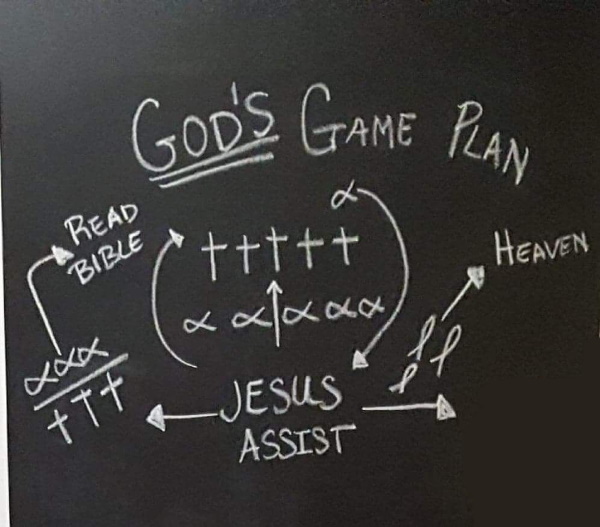 GOD'S GAME PLAN
READ
BIBLE
HEAVEN
JESUS
ASSIST